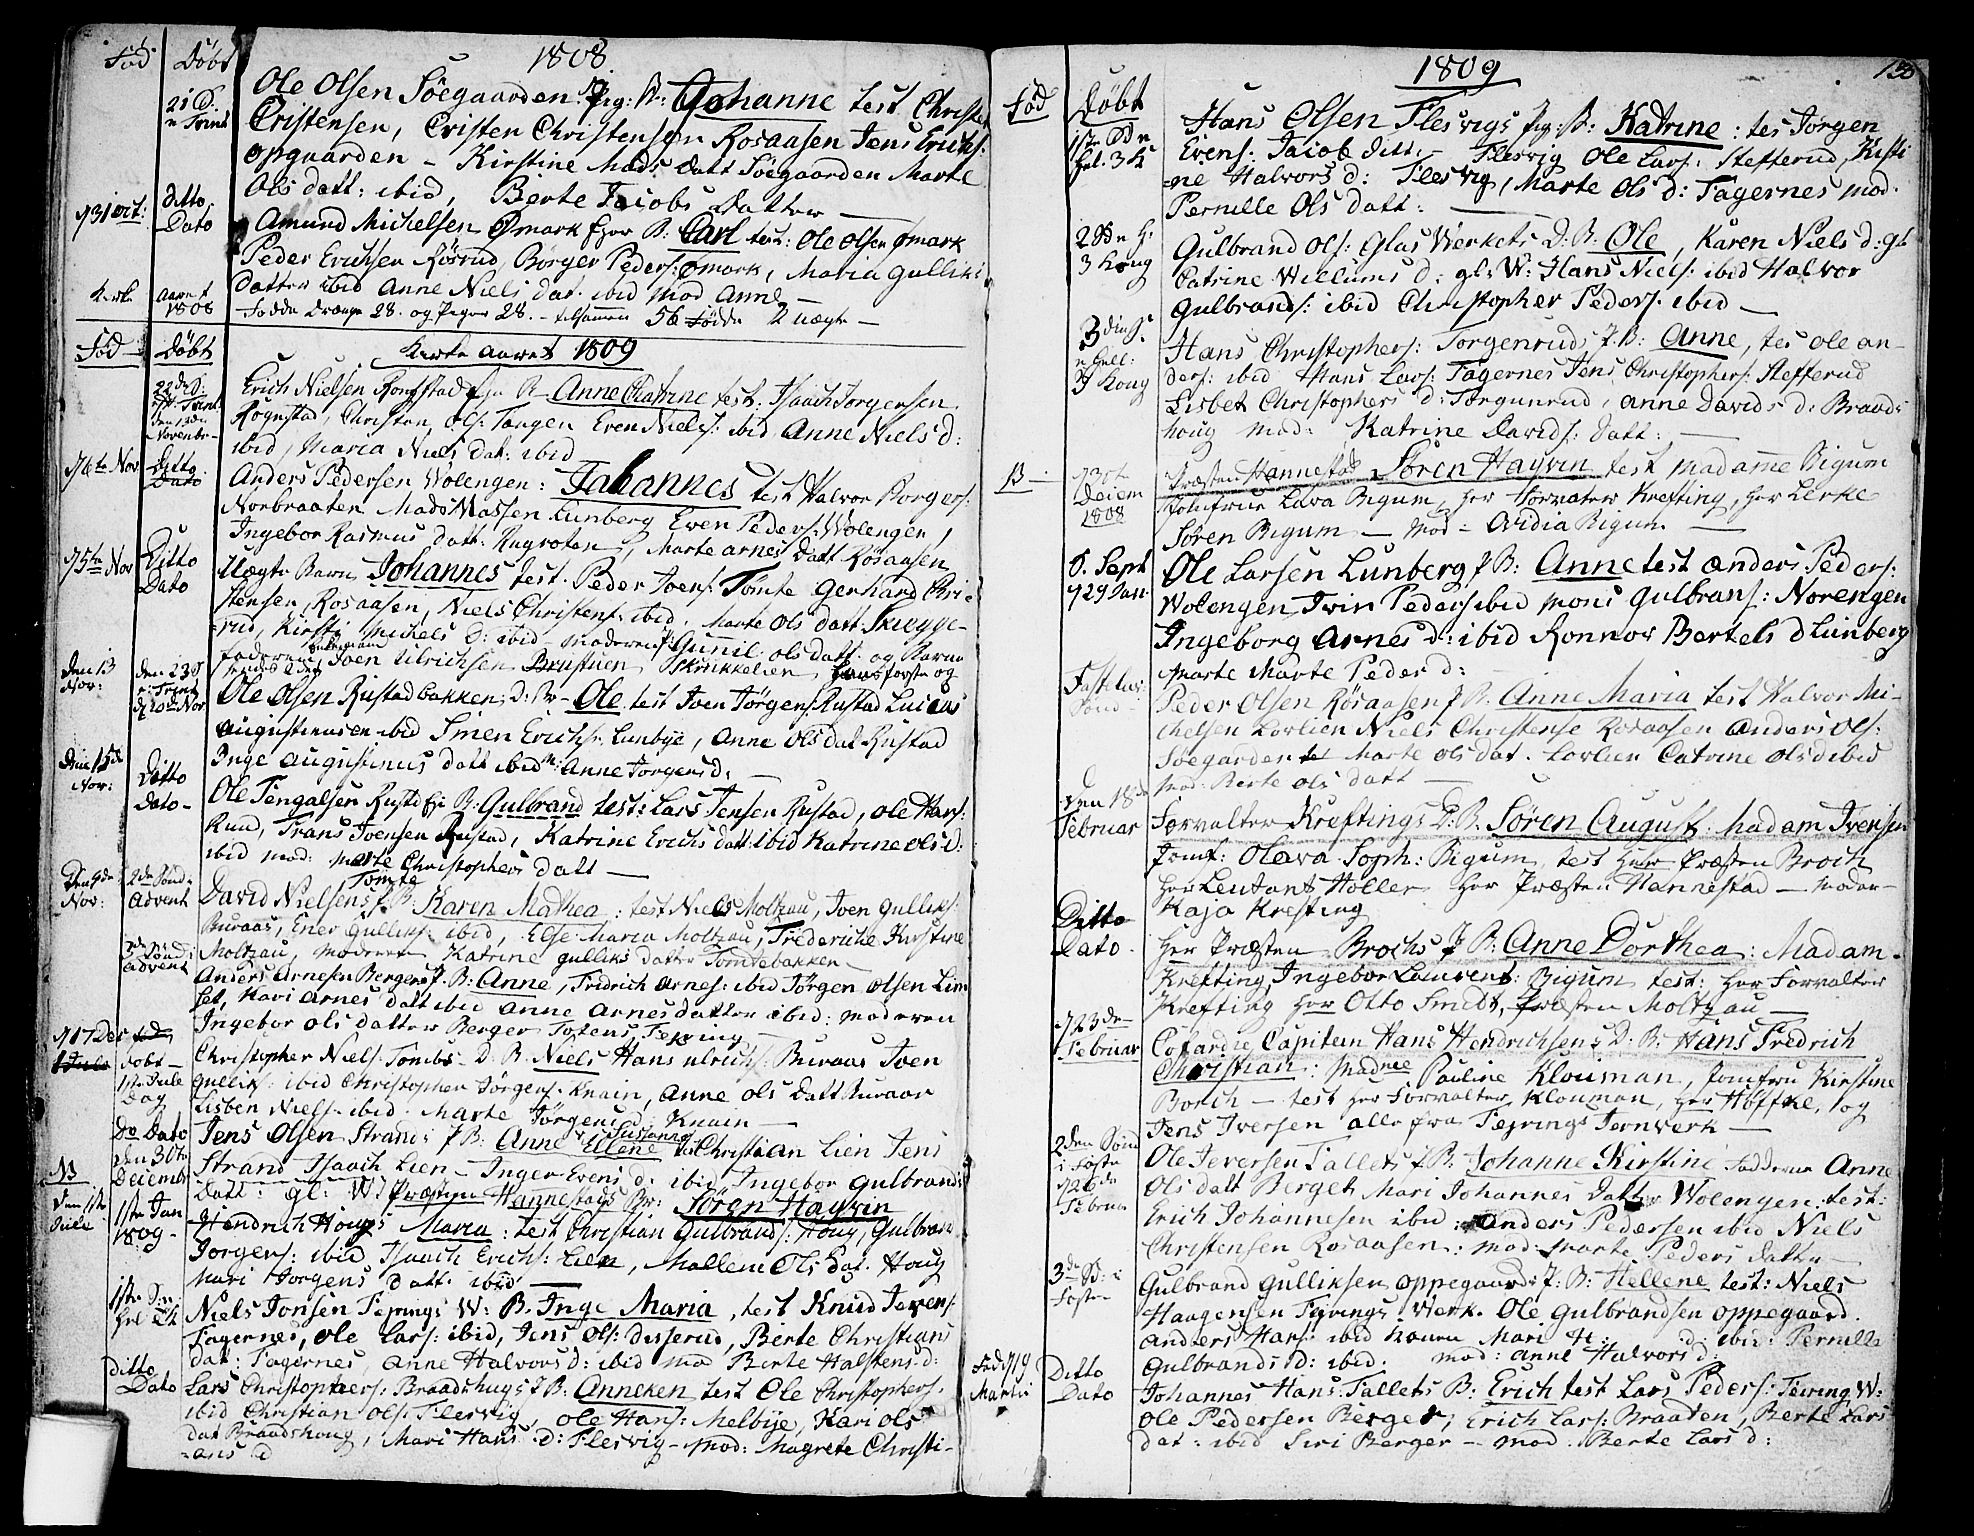 1808
Fød Døbt
21 S. n Trint
Ole Olsen Søegaarden Pig: B: Johanne test Christen
Cristensen, Cristen Christensen Rosaasen Jens Erichs:
opgaarden – Kirstine Mads Datt Søegaarden Marte
Ols datt: ibid, Berte Jacobs Datter —
d 31 oct: ditto Dato
Amund Michelsen Ømark B: Carl test: Ole Olsen Ømark
Peder Erichsen Rørrud, Børger Peders: Ømark, Maria Gulliks
datter ibid Anne Niels dat. ibid mod Anne —
Kirke aaret 1808
Fødde Drenge 28. og Piger 28. – tilsamen 56 Fødde 2 uægte —
Fød Døbt Kirke aaret 1809
22de S: Trint: den 12den Novembr
Erich Nielsen Rognstad B – Anne Catrine test. Isaach Jorgensen
Rognstad, Christen Ols: Tangen Even Niels: ibid Anne Niels d:
ibid, Maria Niels dat: ibid
d 6te Nov Ditto Dato
Anders Pedersen Wolengen: Johannes test Halvor Borgers:
Norbraaten Mads Massen Lunberg Even Peders: Wolengen,
Ingebor Rasmus datt: Rugroten, Marte Arnes Datt Røsaasen
d 5te Nov Ditto Dato
Uægte Barn Johannes test. Peder Ivers: Tømte Gerhard Chri-
stensen, Rosaasen, Niels Christens: ibid. Marte Ols datt: Skiegge-
rud, Kirsti Michels D: ibid – moderen Gunnil Ols datt: og Barne
faderen Iven Ulrichsen Brustuen Skrukkelien, første og
Den 13 Nov: den 23 S n: Trint d 20de Nov
Ole Olsen Rustadbakken, D: B – Ole test Iven Jørgens: Rustad Lucas
Augustinusen ibid Simen Erichs: Lunbye, Anne Ols dat Rustad
Inge Augustinus datt ibid m: Anne Jorgens d:
Den 15de Nov: Ditto Dato –
Ole Tengalsen Rustd B: Gulbrand test: Lars Jensen Rustad, Ole Hans:
Rud, Frans Ivensen Rustad, Katrine Erichs datt: ibid Katrine Ols d:
ibid mod: Marte Christophers datt —
Den 9de Nov: 2den Sønd Advent
David Nielsens Tømte P B: Karen Mathea: test Niels Moltzau, Iven Gulliks:
Buraas, Ener Gulliks: ibid, Else Maria Moltzau, Frederiche Kirstine
Moltzau, moderen Katrine Gulliks datter Tømtebakken —
3de Sønd: Advent
Anders Arnesen Bergers P. B: Anne, Fridrich Arnes: ibid Jörgen Olsen Lim
set, Kari Arnes datt ibid Anne Arnes datter ibid: moderen
Ingebor Ols datter Berger Totens, Feyring —
d 17 Des døbt – 1ste Jule Dag
Christopher Niels: Tømbs – D. B: Niels Hans Ulrichs: Buraas Iven
Gulliks: ibid Christopher Jörgens: Knain, Anne Ols Datt Buraas
Lisben Niels: ibid. Marte Jørgens d: Knain —
Do Dato
Jens Olsen Strands P B: Anne Ellene Susanna test Christian Lien Jens
Strand Isaach Lien – Inger Evens d: ibid, Ingebor Gulbrands
Datt: gl: W:
NB Den 30te Decembr
Præsten Hannestads B: Søren Hayvin
Den 1ste Jule 1ste Jan 1809 –
Hendrich Hougs Maria: test Christian Gulbrands: Houg, Gulbran
Jorgens: ibid Isaach Erichs: Lien, Mallene Ols Dat. Houg
Mari Jorgens Datt: ibid —
1ste S: n: Hel 3 K
Niels Jonsen Feyrings W: B. Inge Maria, test Knud Jevens:
Fagernes, Ole Lars: ibid, Jens Ols: Disserud, Berte Christians
dat: Fagernes, Anne Halvors d: ibid mo Berte Halstens d:
ditto Dato
Lars Christophers: Braadshugs P B: Anneken test Ole Christophers.
ibid Christian Ols: Flesvig, Ole Hans: Melbije, Kari Ols
dat Braadshoug, Mari Hans D: Flesvig – mod: Magrete Christi-
-ans d
1809
150
Fød Døbt
1ste S n hel. 3 K
Hans Olsen Flesvigs Pig: B: Katrine: tes Jörgen
Evens: Jacob ditt. – Flesvig Ole Lars: Stefferud, Kisti
=ne Halvors d: Flesvig, Marte Ols d: Fagernes mod.
Pernille Ols datt: —
2 S n H: 3 Kong
Gulbrand Ols: Glas Werkets D: B: Ole, Karen Niels d: gl
Catrine Willums d: gl: W: Hans Niels: ibid Halvor
Gulbrands: ibid Christopher Peders: ibid —
3 die S: n hell: 3 Kong
Hans Christophers: Torgenruds P. B: Anne, tes Ole An-
ders: ibid Hans Lars: Fagernes Jens Christophers: Stefferud
Lisbet Christophers d: Torgunrud, Anne Davids d: Braads
houg mod: Katrine Davids: datt: —
B – d 30te Decem 1808
Præsten Hannestad Søren Hayvin test Madamme Bigum
Jomfrue Lava Bigum, Her Forvalter Krefting, Her Lerke
Søren Bigum – Mod – Avidia Bigum. —
d. Sept d 29 Jan
Ole Larsen Lunberg P B: Anne test Anders Peders:
Wolengen Ivin Peders ibid Mons Gulbrans: Norengen
Ingeborg Arnes d: ibid Ronnov Bertels d Lunberg
Marte Marte Peder d:
Fastelav: Sønd –
Peder Olsen Røsaasen P B: Anne Maria test Halvor Mi-
chelsen Lovlien Niels Christense Rosaasen Anders Ols:
Søegarden Marte Ols dat. Lovlien Catrine Ols d ibid
mod: Berte Ols datt —
Den 18de Februar
Forvalter Kreftings D: B. Søren August: Madam Ivensen
Jomf: Olava Soph: Bigum, test Her Præsten Broch
Her Leutant Holler Her Præsten Hannestad – moder –
Kaja Krefting
Ditto Dato.
Her Præsten Brochs P B: Anne Dorthea: Madam
Krefting, Ingebor Laurent: Bigum test: Her Forvalter
Krefting Her Otto Smidt, Præsten Moltzau —
d 23de Februar
Cofardie Capitein Hans Hendrichsen's D: B: Hans Fredrich
Christian: Madmee Pauline Klouman, Jomfru Kirstine
Borch – test Her Forvalter Klouman, Her Höffke, og
Jens Iversen alle fra Fejrings Jernverk —
2den Sønd i Faste d 26de Februar
Ole Jeversen Fallets P B: Johanne Kirstine Fadderne Anne
Ols datt Berget Mari Johannes Datter Wolengen. test:
Erich Johannesen ibid: Anders Pedersen ibid Niels
Christensen Rosaasen: mod: Marte Peders datter —
3de S: i Faste
Gulbrand Gulliksen Oppegaards P: B: Hellene test: Niels
Haagensen Fejrings Werk. Ole Gulbrandsen Oppegaard.
Anders Hans: ibid Mari d: ibid: Pernille
Gulbrands d: ibid. mod: Anne Halvors d:
Fød d 19 Martii Ditto Dato
Johannes Hans: Fallets B: Erich test Lars Peders: Feiring W:
Ole Pedersen Berget, Erich Lars: Braaten, Berte Lars
dat: ibid Siri Berger – mod. Berte Lars d: